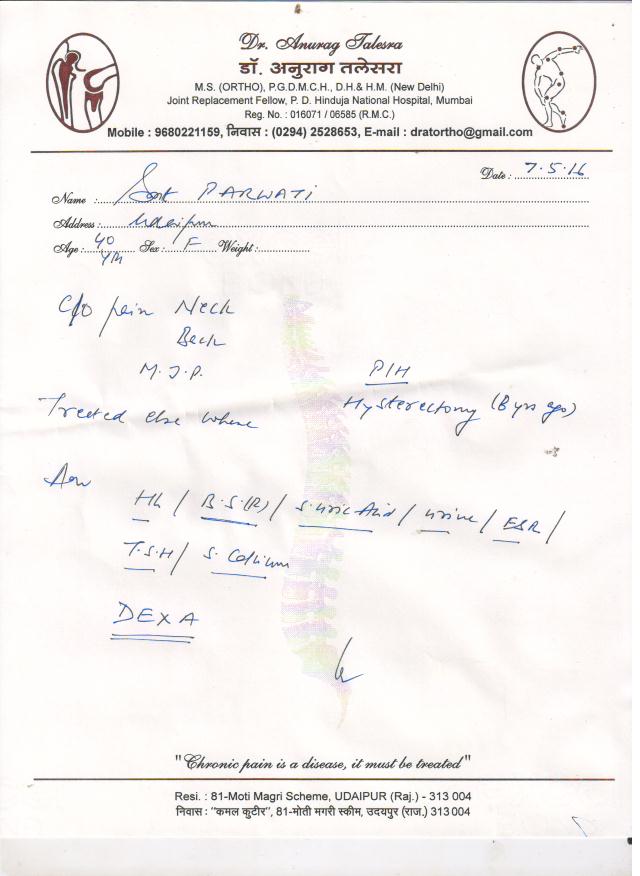 Dr. Anurag Talesra
डॉ. अनुराग तलेसरा
M.S. (ORTHO), P.G.D.M.C.H., D.H.& H.M. (New Delhi)
Joint Replacement Fellow, P. D. Hinduja National Hospital, Mumbai
Reg. No. : 016071 / 06585 (R.M.C.)
Mobile : 9680221159, निवास : (0294) 2528653, E-mail : dratortho@gmail.com
Date : 7.5.16
Name : Smt PARWATI
Address : Udaipur
Age : 40 Yrs Sex : F Weight :
C/o pain Neck
Back
M.J.P.
P/H
Treated else where
Hysterectomy (8 yrs ago)
Adv
Hb / B.S (R) / S. Uric Acid / Urine / ESR /
T.S.H / S. Calcium
DEXA
"Chronic pain is a disease, it must be treated"
Resi. : 81-Moti Magri Scheme, UDAIPUR (Raj.) - 313 004
निवास : "कमल कुटीर", 81-मोती मगरी स्कीम, उदयपुर (राज.) 313 004